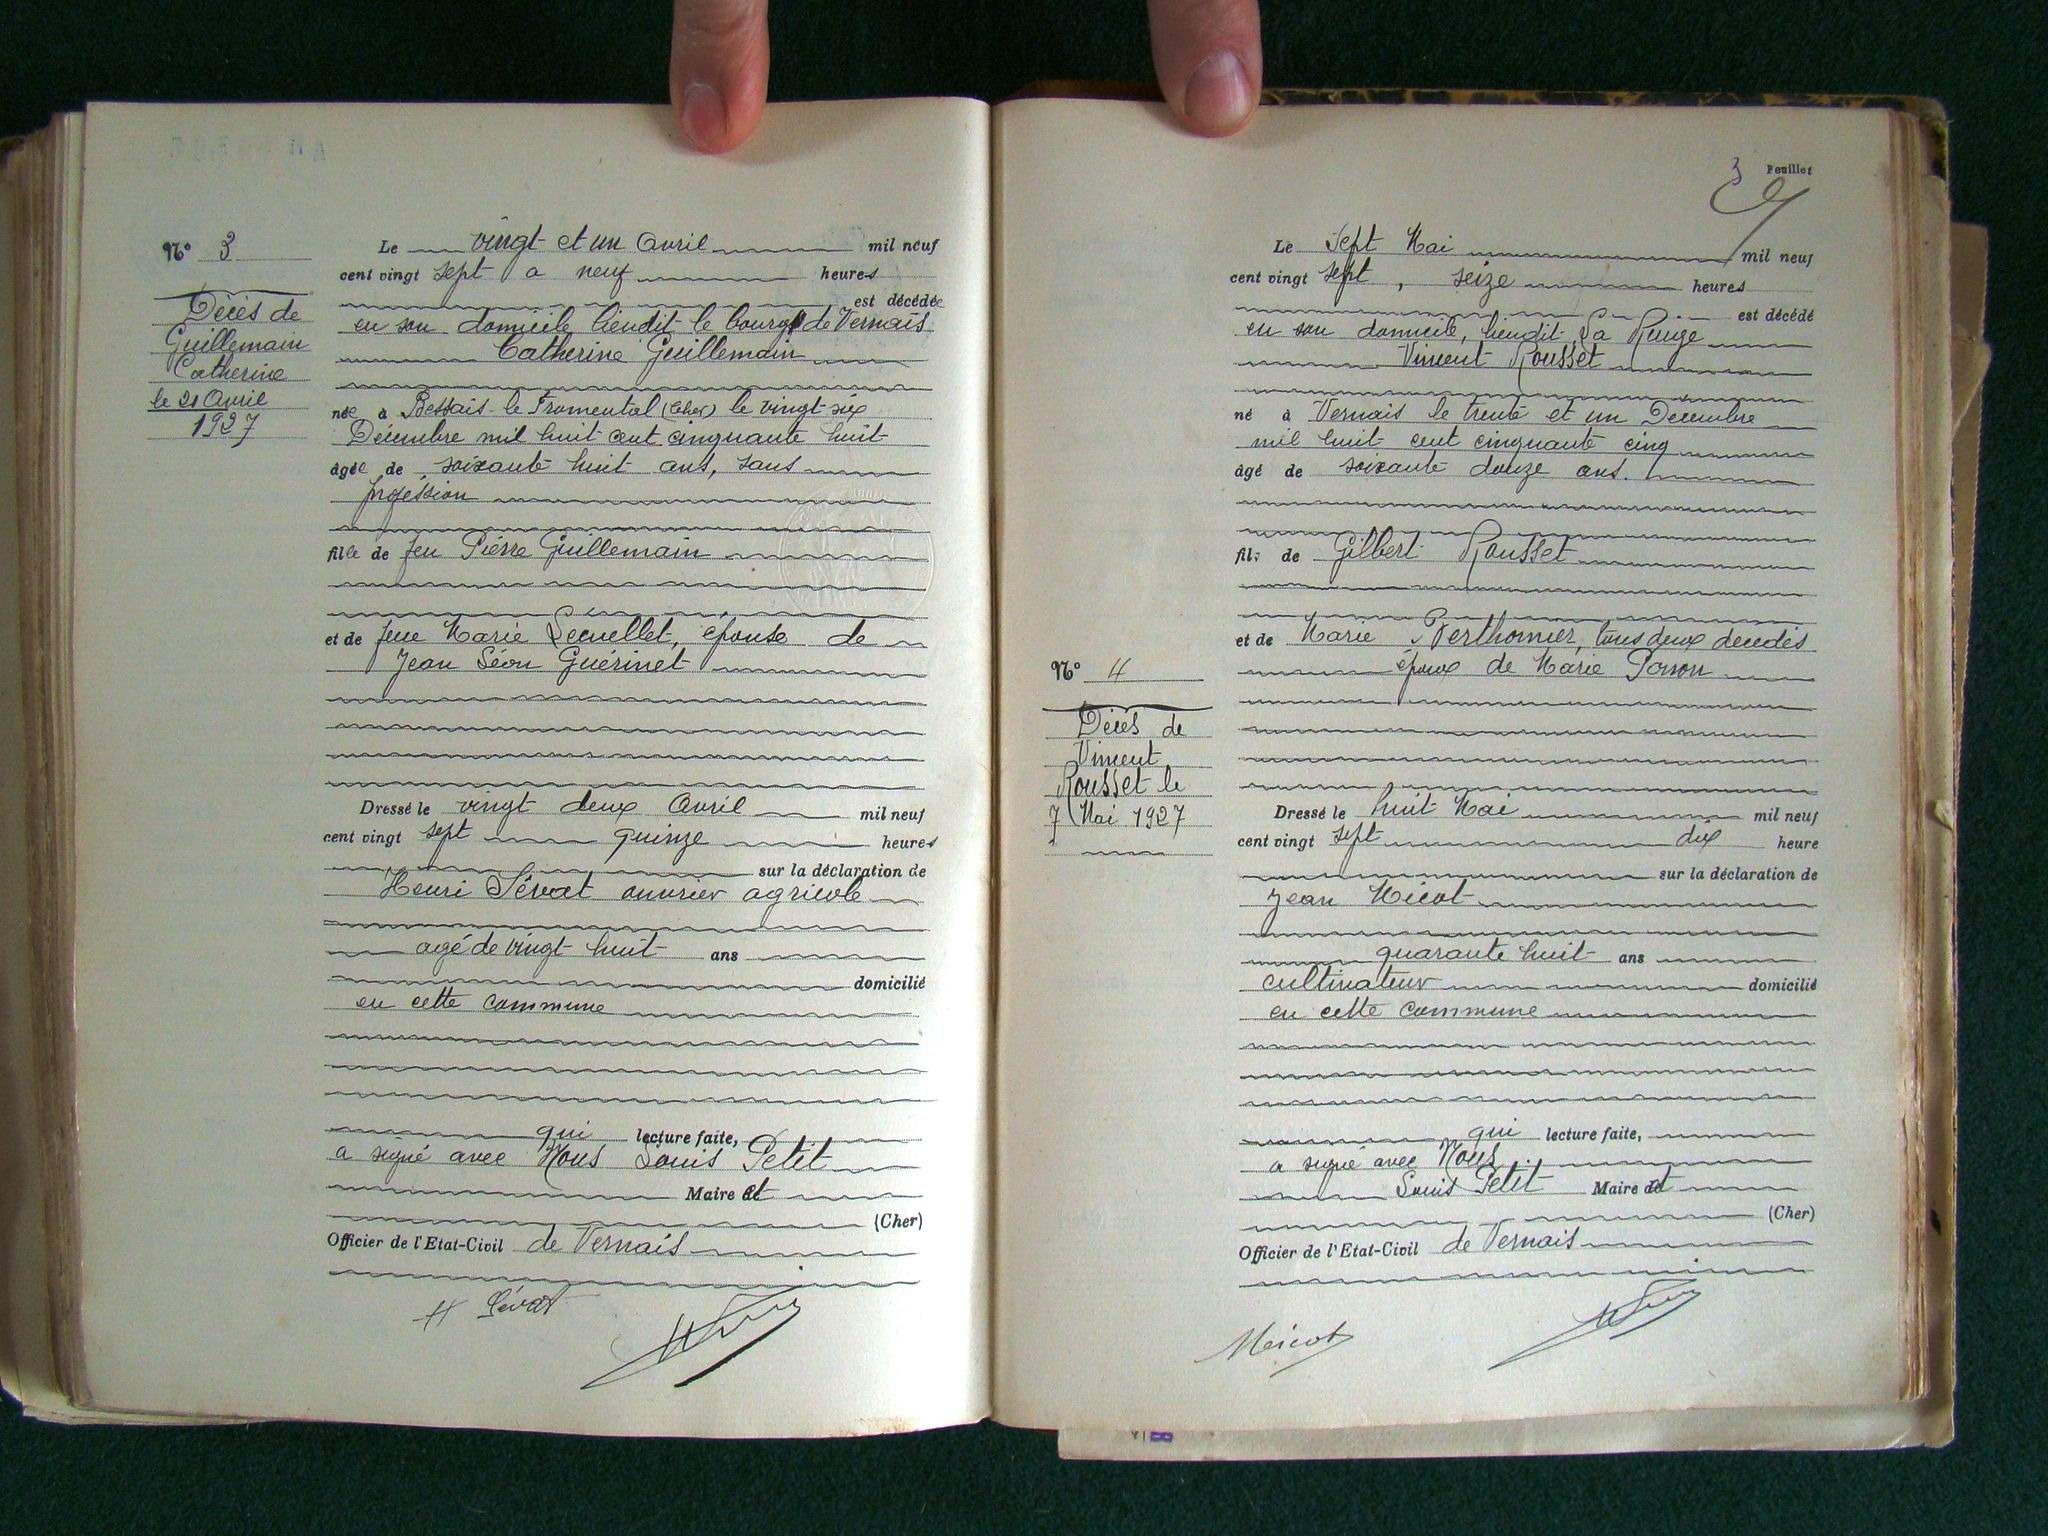 Nº 3
Décès de
Guillemain
Catherine
le 21 Avril
1927
Le vingt et un Avril mil neuf
cent vingt sept à neuf heures
est décédée
en son domicile lieudit le bourg de Vernais
Catherine Guillemain
née à Bessais-le-Fromental (Cher) le vingt-six
Décembre mil huit cent cinquante huit
âgée de soixante huit ans, sans
profession
fille de feu Pierre Guillemain
et de feue Marie Lecuellet, épouse de
Jean Léon Guérinet
Dressé le vingt deux Avril mil neuf
cent vingt sept quinze heures
sur la déclaration de
Henri Sévat ouvrier agricole
agé de vingt huit ans
domicilié
en cette commune
qui lecture faite,
a signé avec Nous Louis Petit
Maire et
(Cher)
Officier de l'Etat-Civil de Vernais
H Sévat
3 Feuillet
Nº 4
Décès de
Vincent
Rousset le
7 Mai 1927
Le Sept Mai mil neuf
cent vingt sept, seize heures
est décédé
en son domicile, lieudit La
Vincent Rousset
né à Vernais le trente et un Décembre
mil huit cent cinquante cinq
âgé de soixante douze ans.
fils de Gilbert Rousset
et de Marie Perthomier, tous deux décédés
époux de Marie
Dressé le huit Mai mil neuf
cent vingt sept dix heure
sur la déclaration de
Jean Micot
quarante huit ans
cultivateur domicilié
en cette commune
qui lecture faite,
a signé avec Nous
Louis Petit Maire et
(Cher)
Officier de l'Etat-Civil de Vernais